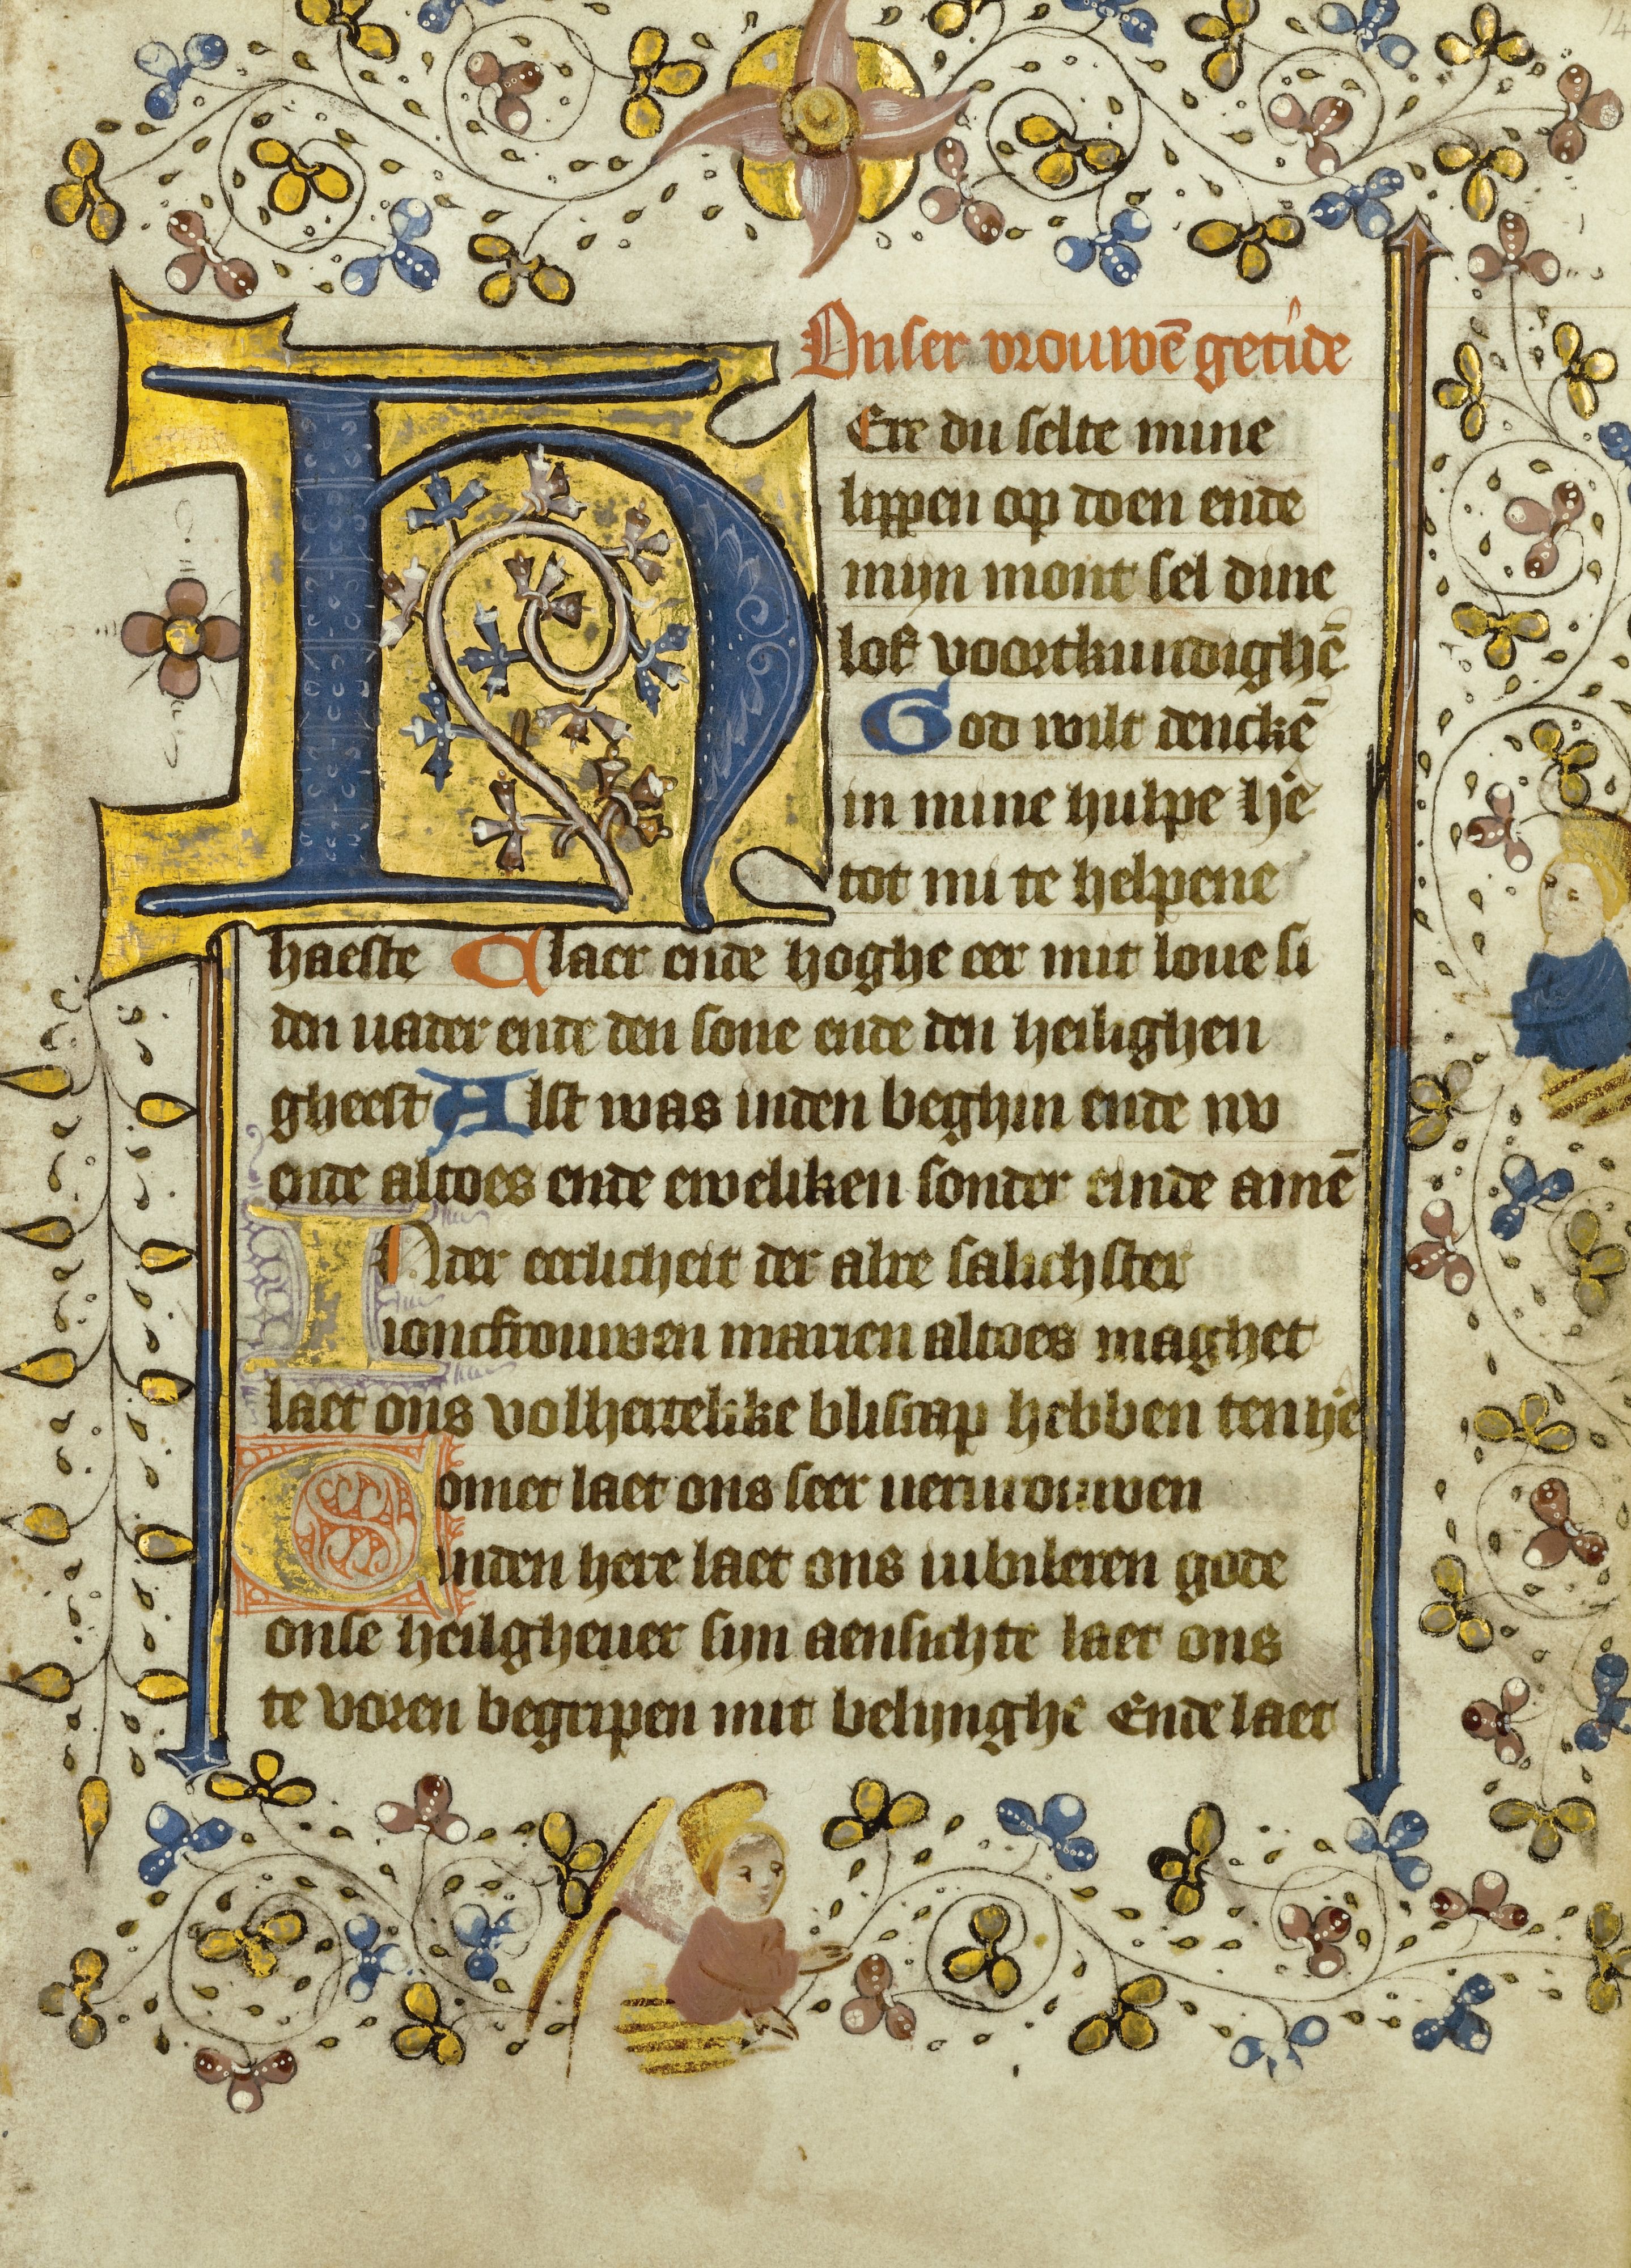 Onser vrouwē getide
HEre du selte mine
lippen op doen ende
mijn mont sel dine
lof voortkundighē
God wilt denckē
in mine hulpe he
tot mi te helpene
haeste Glaer ende hoghe eer mit loue si
den uader ende den sone ende den heilighen
gheest Alst was inden beghin ende nv
ende altoes ende eweliken sonder einde amē
INder eerlicheit der alre salichster
ioncfrouwen marien altoes maghet
laet ons volhertelike bliscap hebben
Comet laet ons seer vervrouwen
inden here laet ons iubileren gode
onse heilgheuer sijn aensichte laet ons
te voren begripen mit belijnghe Ende laet
14